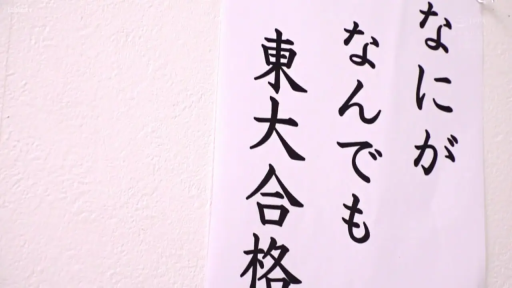 なにが
なんでも
東大合格